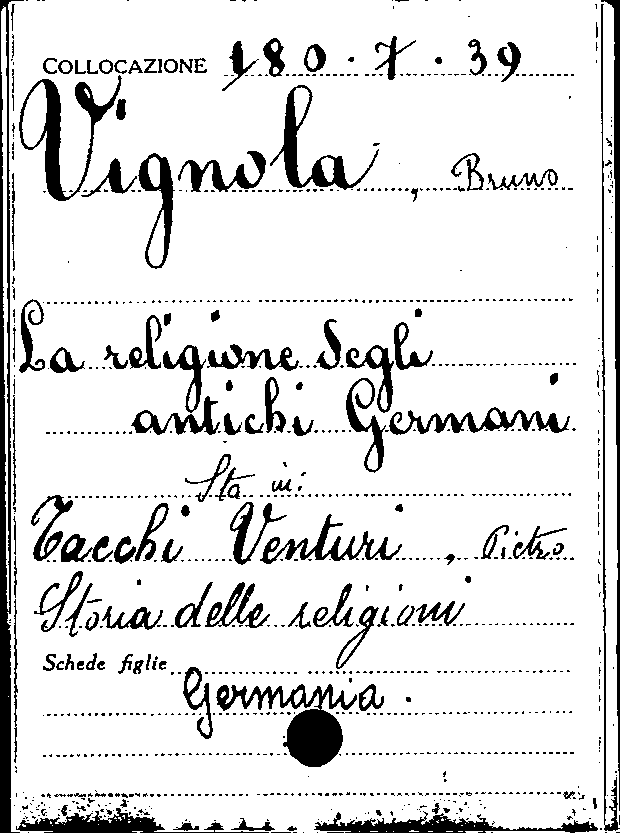 COLLOCAZIONE 180.7.39
Vignola, Bruno
La religione degli
antichi Germani
Sta in:
Tacchi Venturi, Pietro
Storia delle religioni
Schede figlie
Germania.